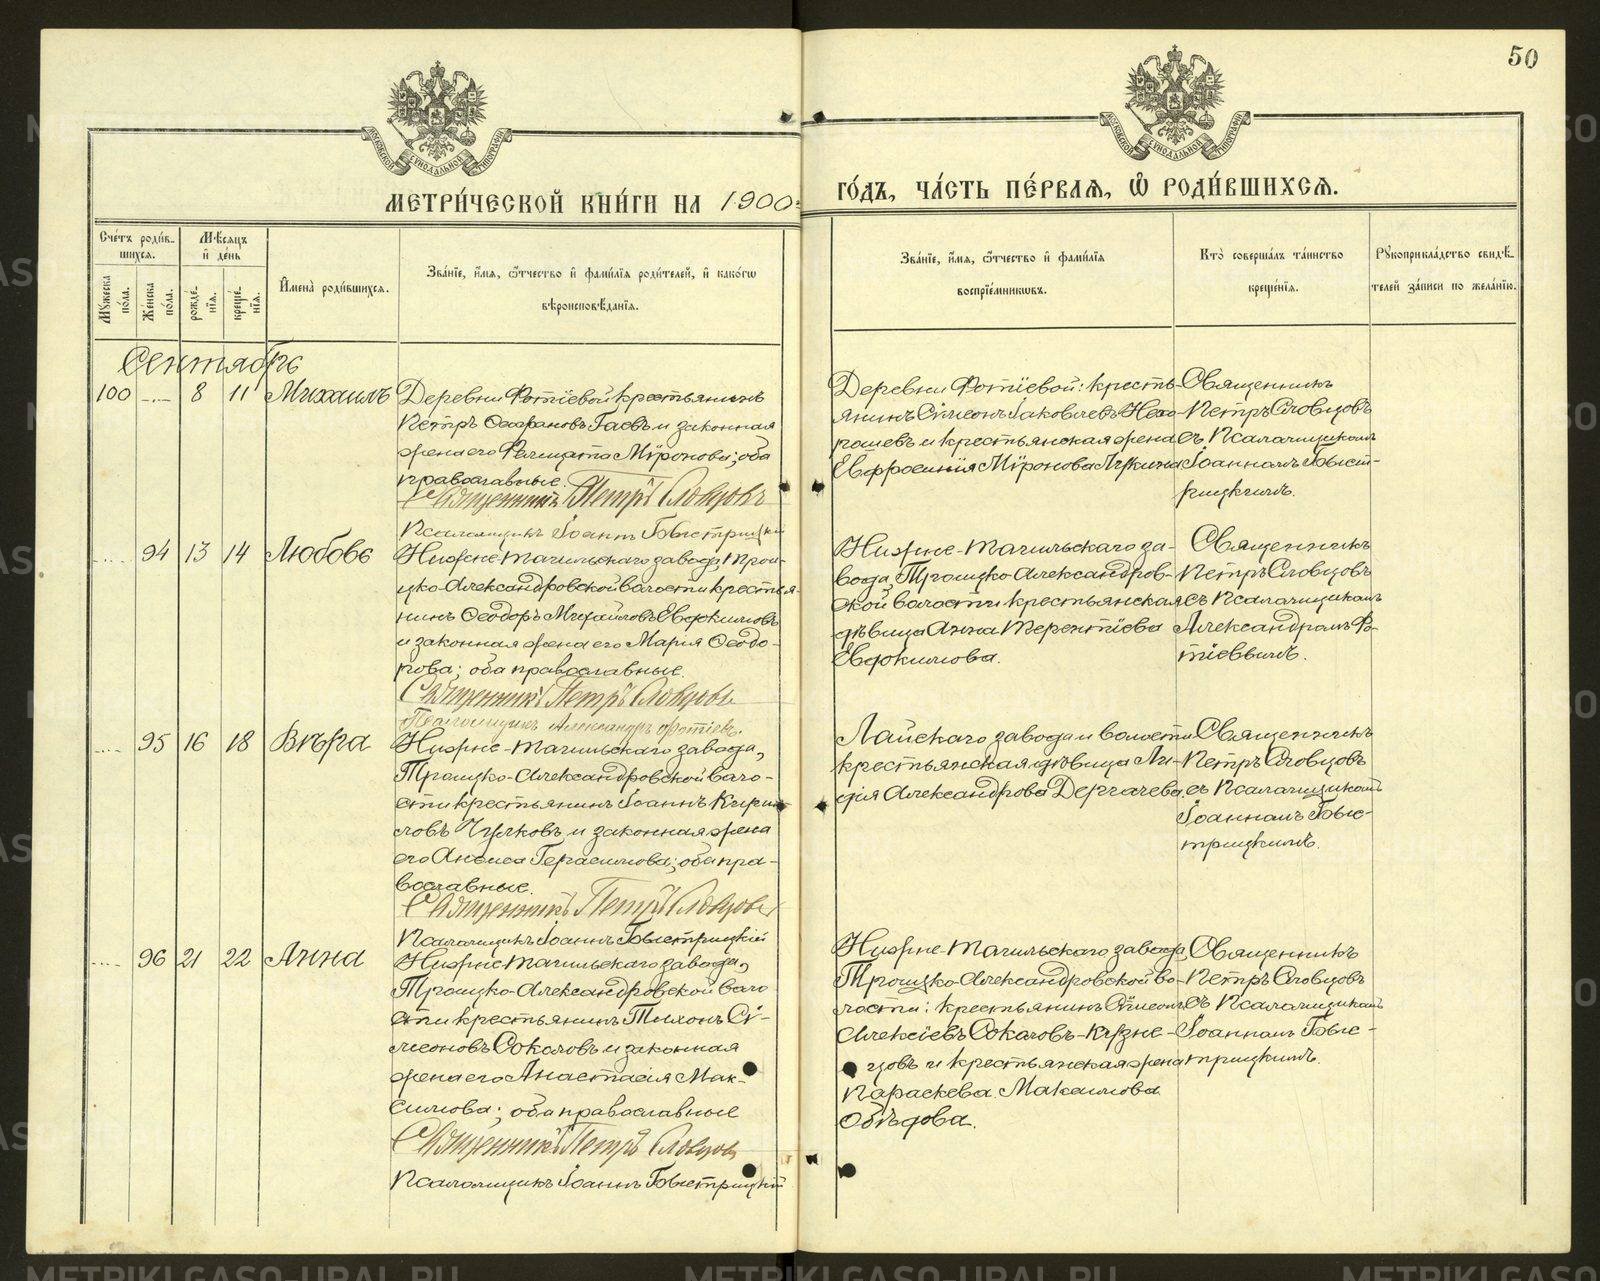 50
МОСКОВСКОЙ СѴНОДАЛЬНОЙ ТИПОГРАФІИ
МОСКОВСКОЙ СѴНОДАЛЬНОЙ ТИПОГРАФІИ
МЕТРИ́ЧЕСКОЙ КНИ́ГИ НА 1900
ГО́ДЪ, ЧА́СТЬ ПЕ́РВАЯ, Ѡ҆ РОДИ́ВШИХСЯ.
Сче́тъ роди́в-
шихся.
Мѣ́сяцъ
и҆ де́нь
Мꙋ́жеска по́ла.
Же́нска по́ла.
рожде́-нїя.
креще́-нїя.
И҆мена̀ роди́вшихся.
Зва́нїе, и҆́мя, ѻ҆́тчество и҆ фами́лїя роди́телей, и҆ како́гѡ
вѣроисповѣ́данїя.
Зва́нїе, и҆́мя, ѻ҆́тчество и҆ фами́лїя
воспрїе́мникѡвъ.
Кто̀ соверша́лъ та́инство
креще́нїя.
Рꙋкоприкла́дство свидѣ́-
телей за́писи по жела́нїю.
Сентябрь
100 8 11 Михаилъ
Деревни Фотіевой крестьянинъ
Петръ Гаевъ и законная
жена его Миронова; оба
православные.
Священникъ Петръ Словцовъ
Псаломщикъ Іоаннъ Быстрицкій
Деревни Фотіевой: кресть-
янинъ Сімеонъ Іаковлевъ Нехо-
рошевъ и крестьянская жена
Евфросинія Міронова
Священникъ
Петръ Словцовъ
съ Псаломщикомъ
Іоанномъ Быст-
рицкимъ.
94 13 14 Любовь
Нижне-Тагильскаго завода, Трои-
цко-Александровской волости крестья-
нинъ Ѳеодоръ Михайловъ Евдокимовъ
и законная жена его Марія Ѳеодо-
рова; оба православные.
Священникъ Петръ Словцовъ
Псаломщикъ Александръ Фотіевъ.
Нижне-Тагильскаго за-
вода, Троицко-Александров-
ской волости крестьянская
дѣвица Анна Терентіева
Евдокимова.
Священникъ
Петръ Словцовъ
съ Псаломщикомъ
Александромъ Фо-
тіевымъ.
95 16 18 Вѣра
Нижне-Тагильскаго завода,
Троицко-Александровской воло-
сти крестьянинъ Іоаннъ Кирил-
ловъ Чулковъ и законная жена
его Анѳиса Герасимова; оба пра-
вославные.
Священникъ Петръ Словцовъ
Псаломщикъ Іоаннъ Быстрицкій
Лайскаго завода и волости
крестьянская дѣвица Ли-
дія Александрова Дергачева.
Священникъ
Петръ Словцовъ
съ Псаломщикомъ
Іоанномъ Быс-
трицкимъ.
96 21 22 Анна
Нижне-Тагильскаго завода,
Троицко-Александровской воло
сти крестьянинъ Тихонъ Сі-
меоновъ Соколовъ и законная
жена его Анастасія Мак-
симова; оба православные
Священникъ Петръ Словцовъ
Псаломщикъ Іоаннъ Быстрицкій
Нижне-Тагильскаго завода,
Троицко-Александровской во-
лости: крестьянинъ Сімеонъ
Алексіевъ Соколовъ-Кузне-
цовъ и крестьянская жена
Параскева Максимова
Объѣдова.
Священникъ
Петръ Словцовъ
съ Псаломщикомъ
Іоанномъ Быс-
трицкимъ.
METRIKI.GASO-URAL.RU